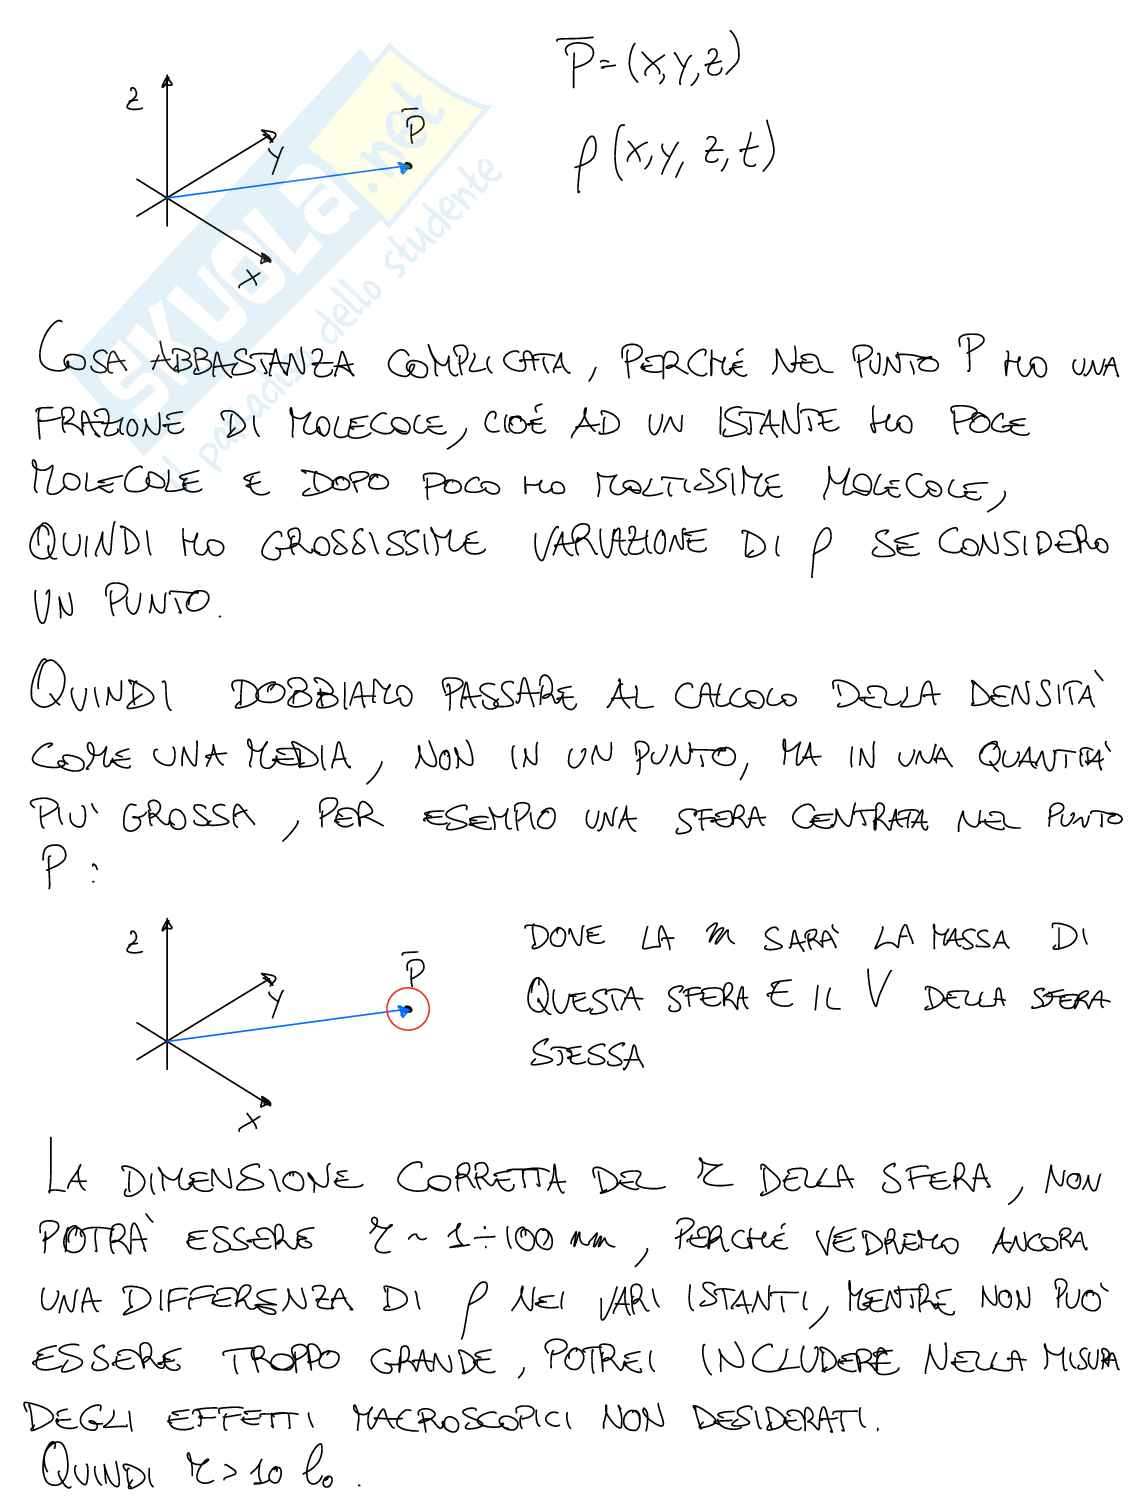 P̅ = (x,y,z)
ρ (x,y,z,t)
z
y
P̅
x
SKUOLA.net
il paradiso dello studente
COSA ABBASTANZA COMPLICATA, PERCHÉ NEL PUNTO P HO UNA
FRAZIONE DI MOLECOLE, CIOÉ AD UN ISTANTE HO POCE
MOLECOLE E DOPO POCO HO MOLTISSIME MOLECOLE,
QUINDI HO GROSSISSIME VARIAZIONE DI ρ SE CONSIDERO
UN PUNTO.
QUINDI DOBBIAMO PASSARE AL CALCOLO DELLA DENSITÀ
COME UNA MEDIA, NON IN UN PUNTO, MA IN UNA QUANTITÀ
PIÙ GROSSA, PER ESEMPIO UNA SFERA CENTRATA NEL PUNTO
P:
z
y
P̅
x
DOVE LA m SARÀ LA MASSA DI
QUESTA SFERA E IL V DELLA SFERA
STESSA
LA DIMENSIONE CORRETTA DEL r DELLA SFERA, NON
POTRÀ ESSERE r ~ 1÷100 nm, PERCHÉ VEDREMO ANCORA
UNA DIFFERENZA DI ρ NEI VARI ISTANTI, MENTRE NON PUÒ
ESSERE TROPPO GRANDE, POTREI INCLUDERE NELLA MISURA
DEGLI EFFETTI MACROSCOPICI NON DESIDERATI.
QUINDI r > 10 l₀.